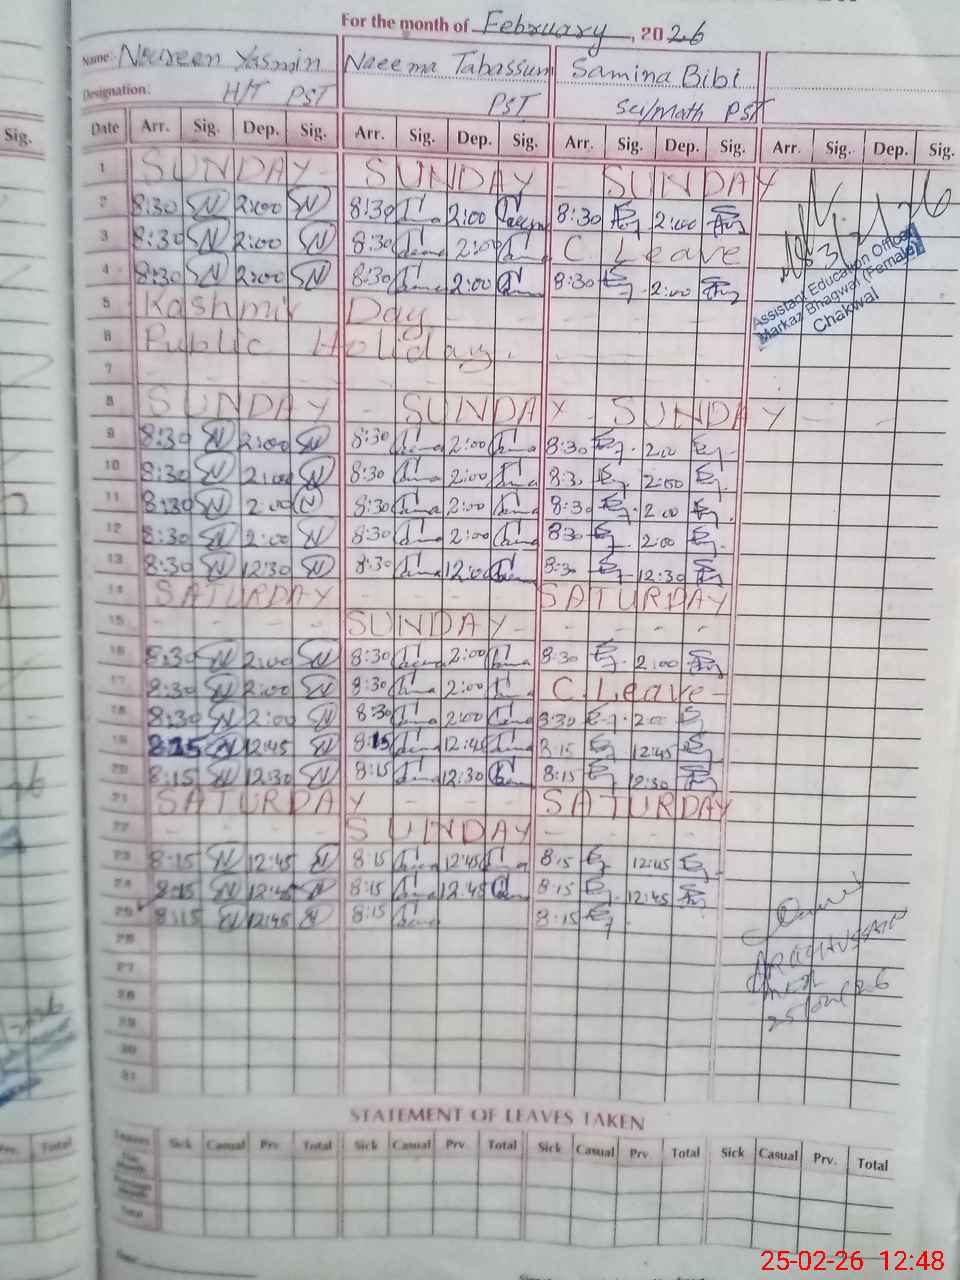 For the month of February, 2026
Name: Noureen Yasmin Naeema Tabassum Samina Bibi
Designation: H/T PST PST Sci/Math PST
Sig. Date Arr. Sig. Dep. Sig. Arr. Sig. Dep. Sig. Arr. Sig. Dep. Sig. Arr. Sig. Dep. Sig.
1 SUNDAY - SUNDAY - SUNDAY
2 8:30 2:00 8:30 2:00 8:30 2:00
3 8:30 2:00 8:30 2:00 C. Leave
4 8:30 2:00 8:30 2:00 8:30 2:00
Assistant Education Officer
Markaz Bhagwal (Female)
Chakwal
5 Kashmir Day
6 Public Holiday.
7
8 SUNDAY - SUNDAY - SUNDAY -
9 8:30 2:00 8:30 2:00 8:30 2:00
10 8:30 2:00 8:30 2:00 8:30 2:00
11 8:30 2:00 8:30 2:00 8:30 2:00
12 8:30 2:00 8:30 2:00 8:30 2:00
13 8:30 12:30 8:30 12:00 8:30 12:30
14 SATURDAY - - - SATURDAY
15 - - - - SUNDAY - - - - -
16 8:30 2:00 8:30 2:00 8:30 2:00
17 8:30 2:00 8:30 2:00 C. Leave -
18 8:30 2:00 8:30 2:00 8:30 2:00
19 8:15 12:45 8:15 12:45 8:15 12:45
20 8:15 12:30 8:15 12:30 8:15 12:30
21 SATURDAY - - - SATURDAY
22 - - - - SUNDAY - - - -
23 8:15 12:45 8:15 12:45 8:15 12:45
24 8:15 12:45 8:15 12:45 8:15 12:45
25 8:15 12:45 8:15 8:15
26
27
28
29
30
31
STATEMENT OF LEAVES TAKEN
Prv. Total Leaves Sick Casual Prv Total Sick Casual Prv. Total Sick Casual Prv Total Sick Casual Prv. Total
This Month
Previous Month
Total
25-02-26 12:48